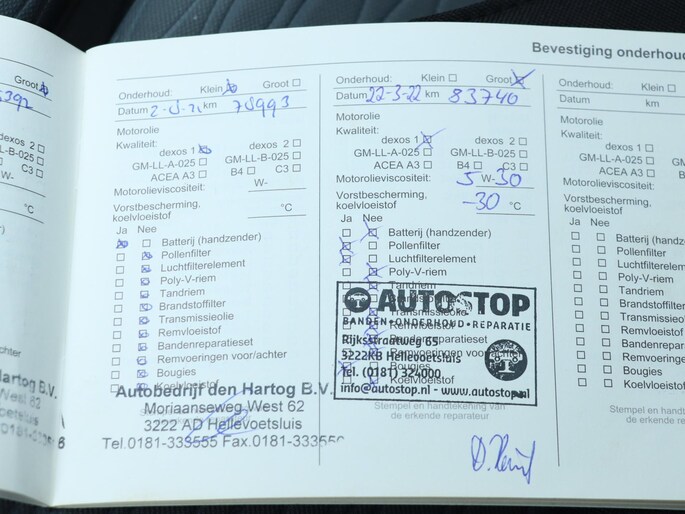 Bevestiging onderhoud
Groot
5392
dexos 2
LL-B-025
C3
°C
achter
Hartog B.V.
West 62
oetsluis
Onderhoud: Klein Groot
Datum 2-5-21 km 75993
Motorolie
Kwaliteit:
dexos 1 dexos 2
GM-LL-A-025 GM-LL-B-025
ACEA A3 B4 C3
Motorolieviscositeit: W-
Vorstbescherming,
koelvloeistof °C
Ja Nee
Batterij (handzender)
Pollenfilter
Luchtfilterelement
Poly-V-riem
Tandriem
Brandstoffilter
Transmissieolie
Remvloeistof
Bandenreparatieset
Remvoeringen voor/achter
Bougies
Koelvloeistof
Autobedrijf den Hartog B.V.
Moriaanseweg West 62
3222 AD Hellevoetsluis
Tel.0181-333555 Fax.0181-333556
Onderhoud: Klein Groot
Datum 22-3-22 km 83740
Motorolie
Kwaliteit:
dexos 1 dexos 2
GM-LL-A-025 GM-LL-B-025
ACEA A3 B4 C3
Motorolieviscositeit: 5 W-30
Vorstbescherming,
koelvloeistof -30 °C
Ja Nee
Batterij (handzender)
Pollenfilter
Luchtfilterelement
Poly-V-riem
Tandriem
Brandstoffilter
Transmissieolie
Remvloeistof
Bandenreparatieset
Remvoeringen voor
Bougies
Koelvloeistof
AUTOSTOP
BANDEN•ONDERHOUD•REPARATIE
Rijksstraatweg 65
3222KB Hellevoetsluis
Tel. (0181) 324000
info@autostop.nl - www.autostop.nl
Stempel en handtekening van
de erkende reparateur
Onderhoud: Klein
Datum km
Motorolie
Kwaliteit:
dexos 1
GM-LL-A-025
ACEA A3
Motorolieviscositeit:
Vorstbescherming,
koelvloeistof
Ja Nee
Batterij (handzender)
Pollenfilter
Luchtfilterelement
Poly-V-riem
Tandriem
Brandstoffilter
Transmissieolie
Remvloeistof
Bandenreparatieset
Remvoeringen voor/
Bougies
Koelvloeistof
Stempel en handteken
de erkende repara